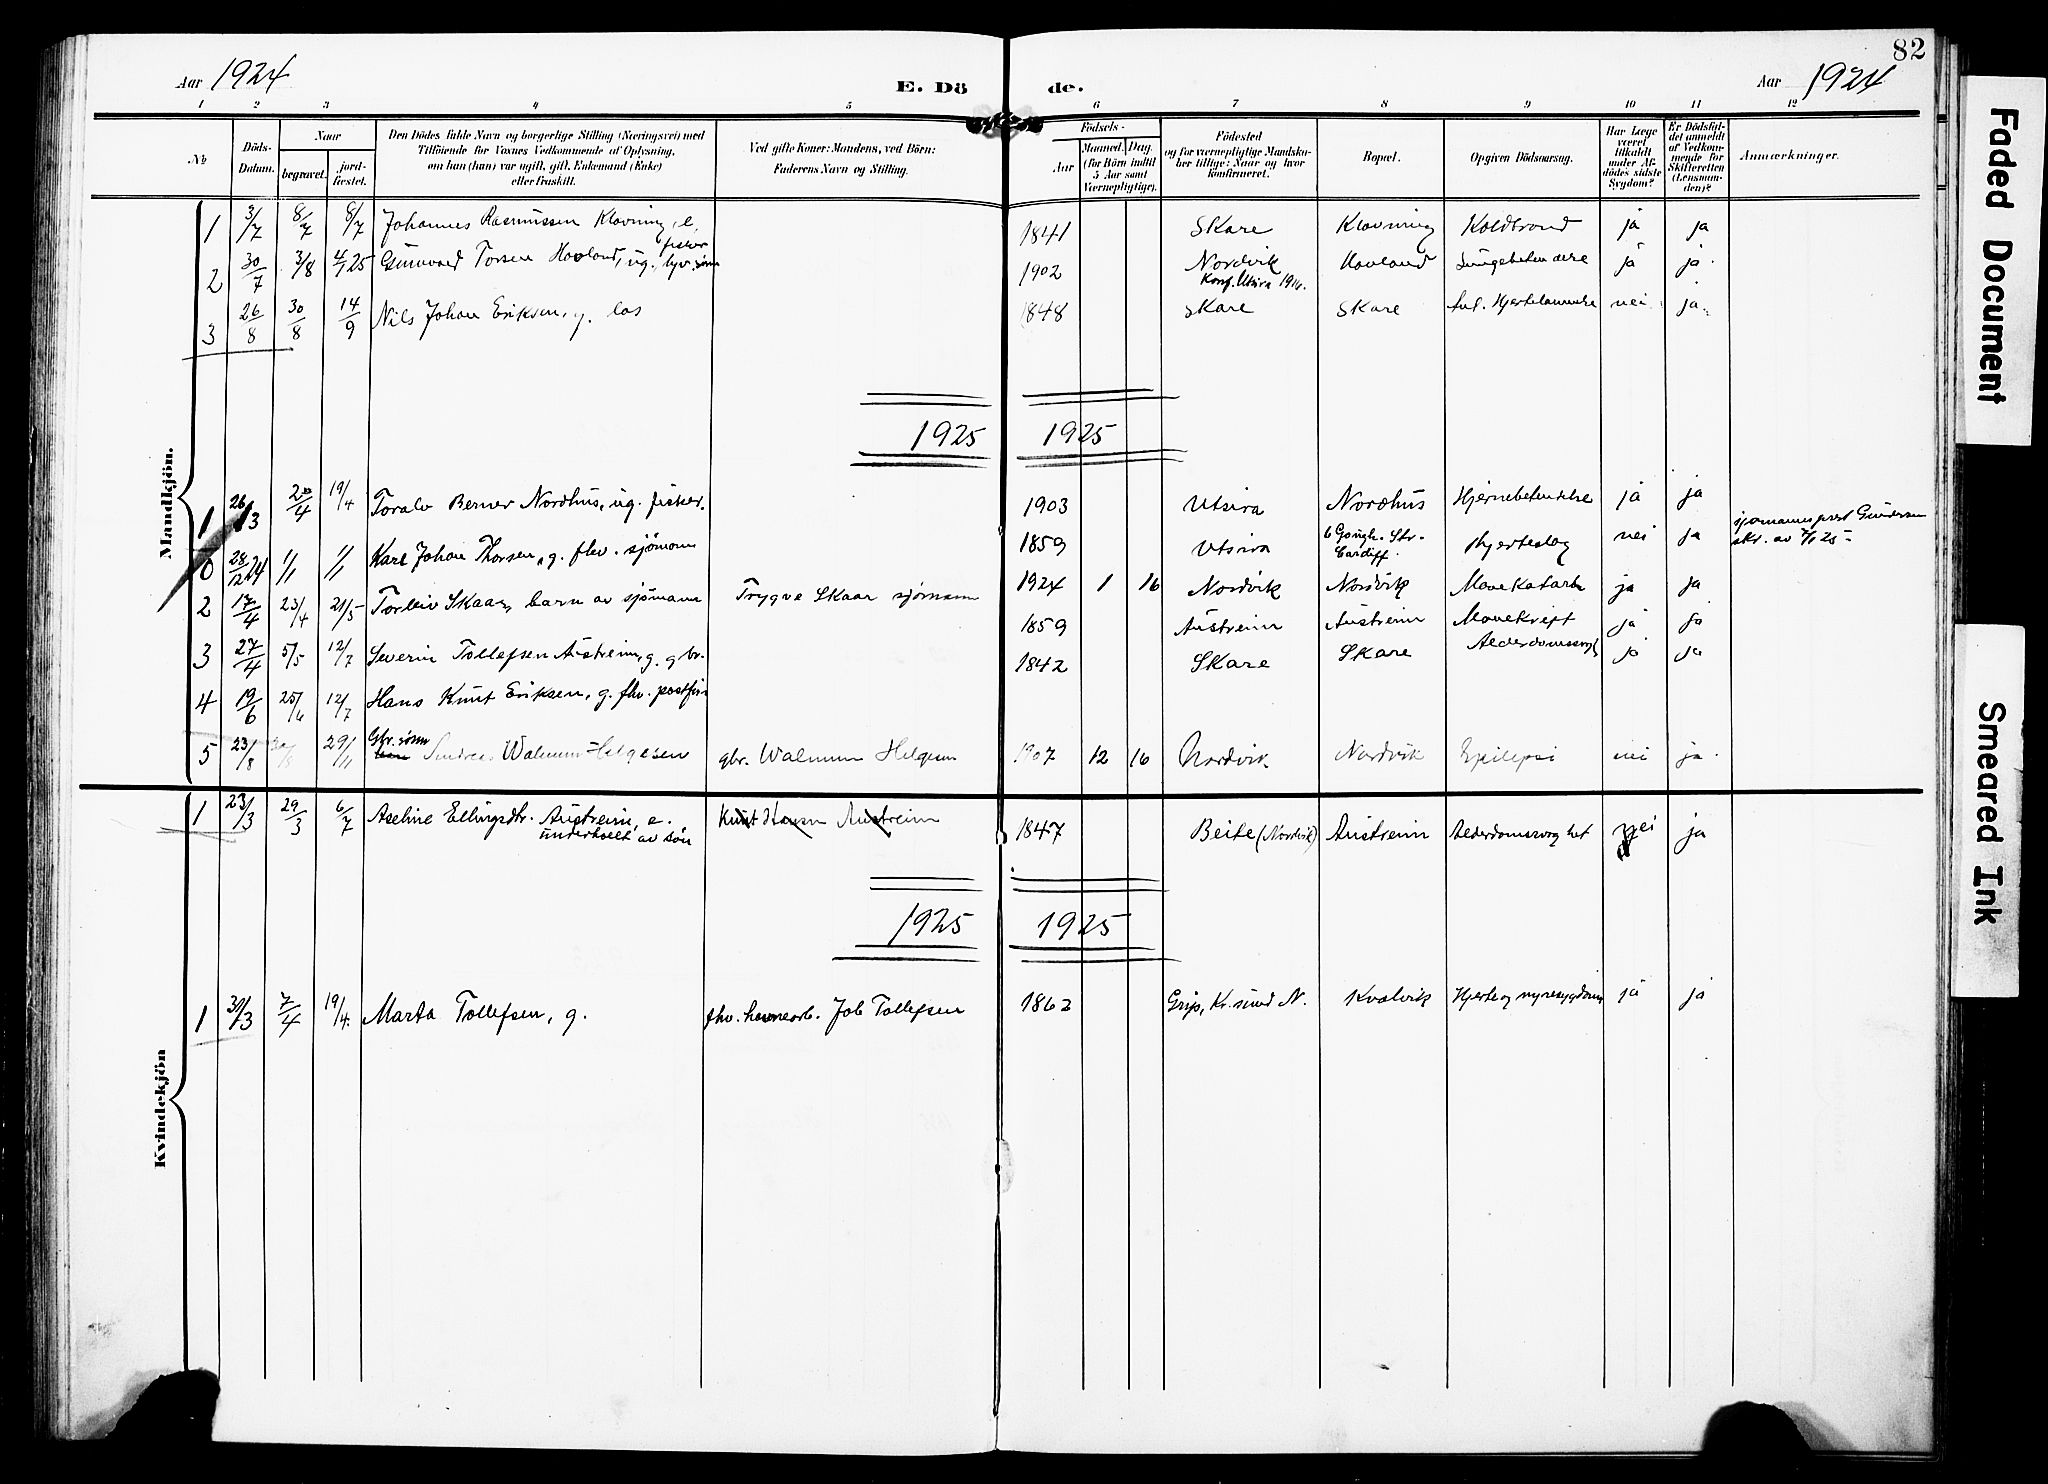 82
Aar 1924 E. Dö de. Aar 1924
1 2 3 4 5 6 7 8 9 10 11 12
No
Döds-Datum.
Naar
begravet.
jord-fæstet.
Den Dödes fulde Navn og borgerlige Stilling (Næringsvei) med
Tilföiende for Voxnes Vedkommende af Oplysning,
om han (hun) var ugift, gift, Enkemand (Enke)
eller fraskilt.
Ved gifte Koner: Mandens, ved Börn:
Faderens Navn og Stilling.
Födsels-
Aar
Maaned. Dag.
(for Börn indtil
5 Aar samt
Værnepligtige).
Födested
og for værnepligtige Mandska-
ber tillige: Naar og hvor
konfirmeret.
Bopæl.
Opgiven Dödsaarsag.
Har Læge
været
tilkaldt
under Af-
dödes sidste
Sygdom?
Er Dödsfal-
det anmeldt
af Vedkom-
mende for
Skifteretten
(Lensman-
den)?
Anmærkninger.
Mandkjön.
1 3/7 8/7 8/7 Johannes Rasmussen Klovning, e. fisker 1841 Skare Klovning Koldbrand ja ja
2 30/7 3/8 4/1 25 Gunvald Torsen Hovland, ug. 1902 Nordvik Hovland Lungebetendelse ja ja
Konf. Utsira 1916.
3 26/8 30/8 14/9 Nils Johan Eriksen, g. los 1848 Skare Skare Ant. Hjertelammelse nei ja
1925 1925
1 26/3 2/4 19/4 Toralv Berner Nordhus, ug. fisker. 1903 Utsira Nordhus Hjernebetendelse ja ja
0 28/12 24 1/1 1/1 Karl Johan Thorsen, g. fhv. sjömann 1859 Utsira 6 Gough. Str. Cardiff. Hjerteslag nei ja sjømannsprest Gundersen
skr. av
2 17/4 23/4 21/5 Torleiv Skaar, barn av sjömann Trygve Skaar sjömann 1924 1 16 Nordvik Nordvik Mavekatarh ja ja
3 27/4 5/5 12/7 Severin Tollefsen Austreim, g. gbr. 1859 Austreim Austreim Mavekreft ja ja
4 19/6 25/6 12/7 Hans Knut Eriksen, g. fhv. postfører 1842 Skare Skare Alderdomssvagh ja ja
5 23/8 30/8 29/11 Gbr. sønn Sindreas Walmum Helgesen gbr. Walmum Helgesen 1907 12 16 Nordvik Nordvik Epilepsi nei ja
Kvindekjön
1 23/3 29/3 6/7 Aseline Ellingsdtr. Austreim, e. Knut Hansen Austreim 1847 Beite (Nordvik) Austreim Alderdomssvaghet nei ja
underholdt av søn
1925 1925
1 31/3 7/4 19/4 Marta Tollefsen, g. fhv. havnearb. Job Tollefsen 1862 Grip, Kr.sund N. Kvalvik Hjerte og nyresygdom ja ja
Faded Document
Smeared Ink